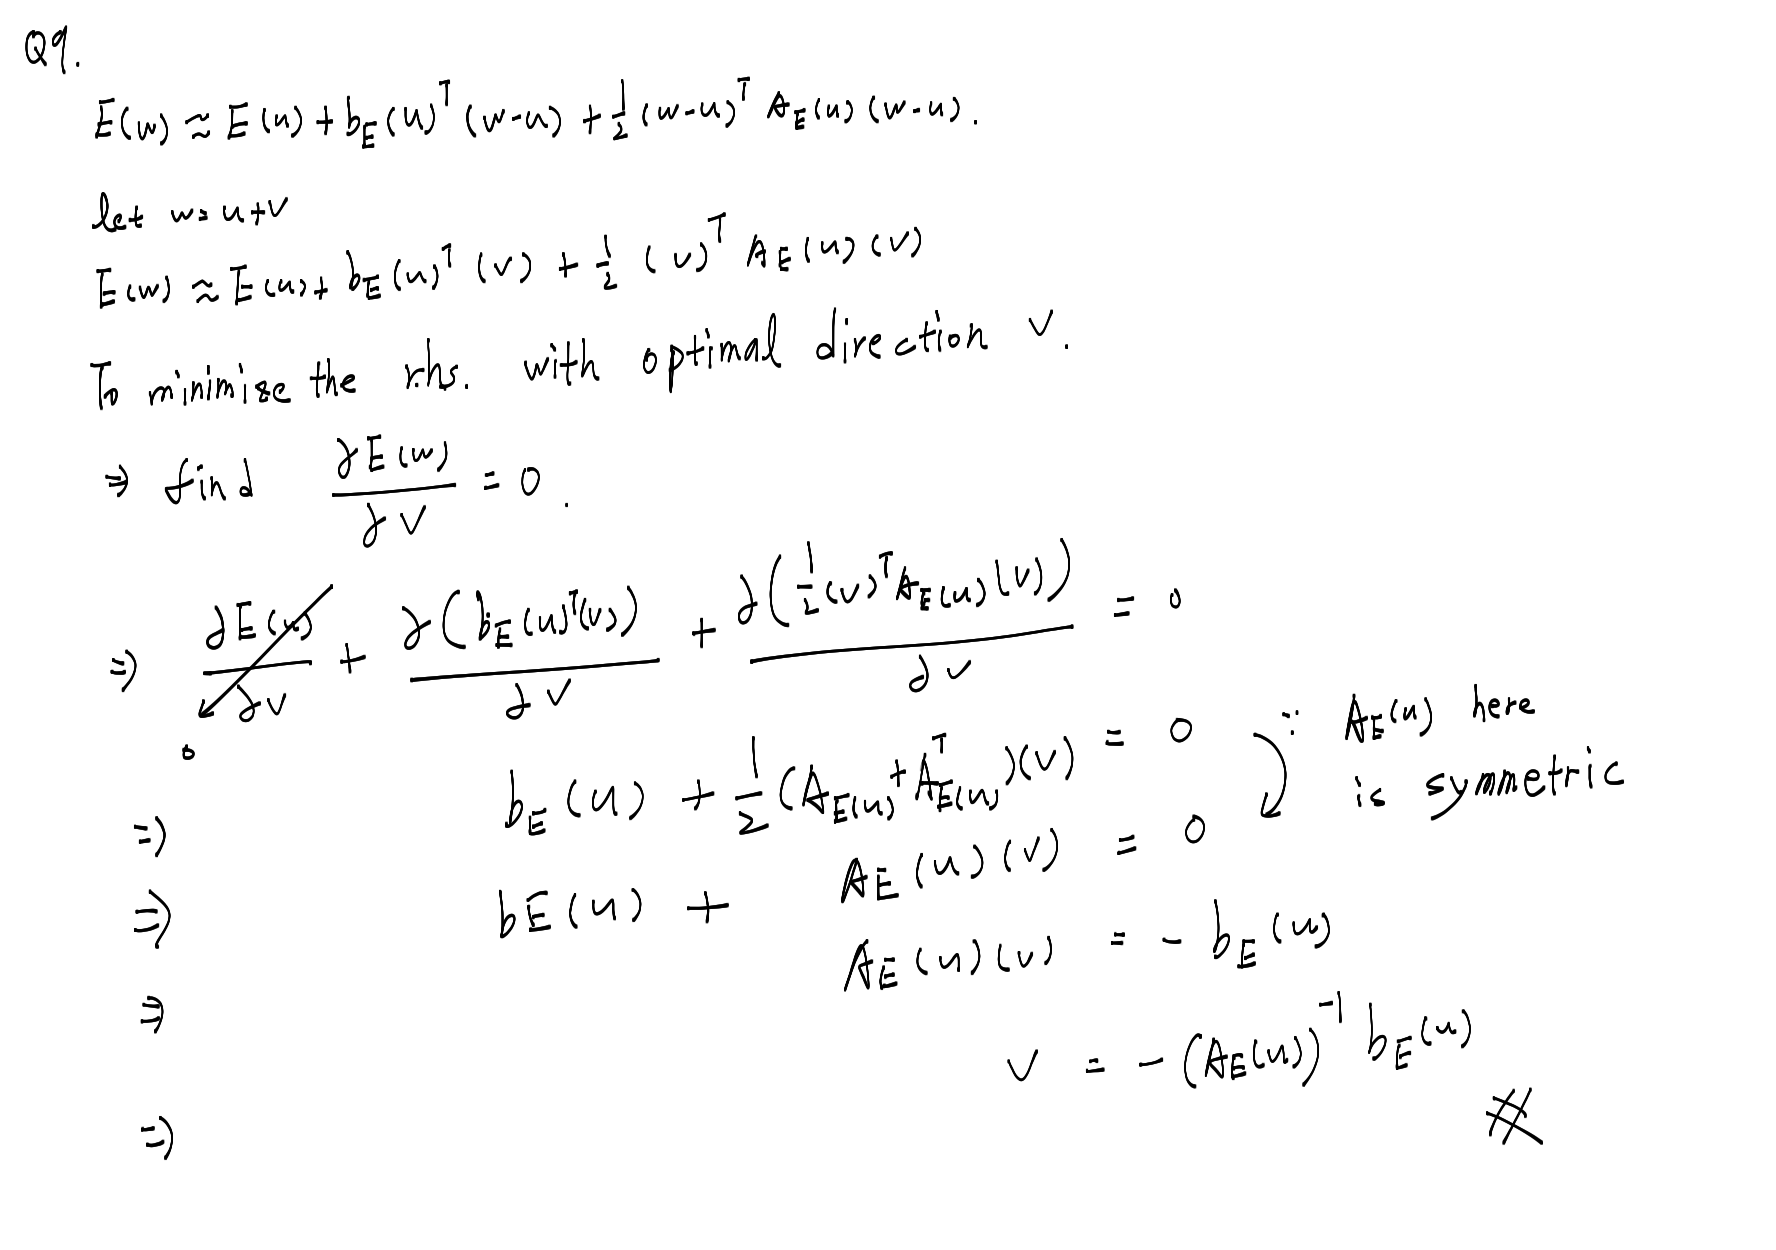 Q9.
E(w) ≈ E(u) + b_E(u)^T (w-u) + 1/2 (w-u)^T A_E(u) (w-u).
let w = u+v
E(w) ≈ E(u) + b_E(u)^T (v) + 1/2 (v)^T A_E(u) (v)
To minimize the rhs. with optimal direction v.
⇒ find ∂E(w)/∂v = 0.
⇒ ∂E(u)/∂v → 0 + ∂(b_E(u)^T(v))/∂v + ∂(1/2 (v)^T A_E(u) (v))/∂v = 0
⇒ b_E(u) + 1/2 (A_E(u) + A_E(u)^T)(v) = 0 ∵ A_E(u) here is symmetric
⇒ b_E(u) + A_E(u)(v) = 0
⇒ A_E(u)(v) = - b_E(u)
⇒ v = - (A_E(u))^-1 b_E(u) #